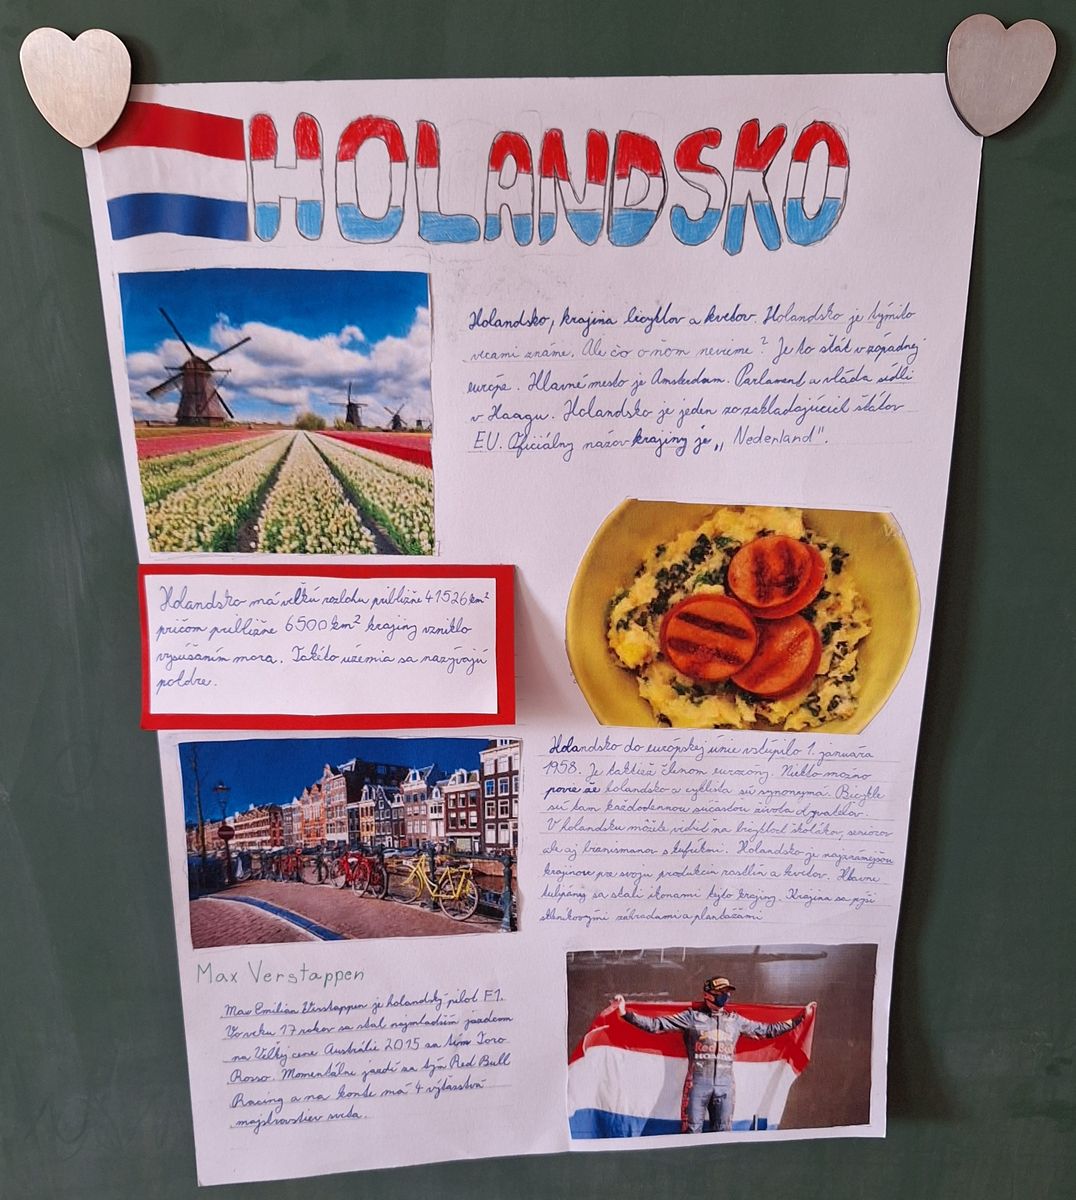 HOLANDSKO
Holandsko, krajina bicyklov a kvetov. Holandsko je týmito
vecami známe. Ale čo o ňom nevieme? Je to štát v západnej
európe. Hlavné mesto je Amsterdam. Parlament a vláda sídli
v Haagu. Holandsko je jeden zo zakladajúcich štátov
EU. Oficiálny názov krajiny je „Nederland".
Holandsko má veľkú rozlohu približne 41526 km²
pričom približne 6500 km² krajiny vzniklo
vysúšaním mora. Takéto územia sa nazývajú
poldre.
Holandsko do európskej únie vstúpilo 1. januára
1958. Je taktiež členom eurozóny. Niekto možno
povie že holandsko a cyklista sú synonymá. Bicykle
sú tam každodennou súčasťou života obyvateľov.
V holandsku môžete vidieť na bicykloch školákov, seniorov
ale aj biznismanov s kufríkmi. Holandsko je najznámejšou
krajinou pre svoju produkciu rastlín a kvetov. Hlavne
tulipány sa stali ikonami tejto krajiny. Krajina sa pýši
skleníkovými záhradami a plantážami
Max Verstappen
Max Emilian Verstappen je holandský pilot F1.
Vo veku 17 rokov sa stal najmladším jazdcom
na Veľkej cene Austrálie 2015 za tím Toro
Rosso. Momentálne jazdí za tým Red Bull
Racing a na konte má 4 víťazstvá
majstrovstiev sveta.
Red Bull
HONDA